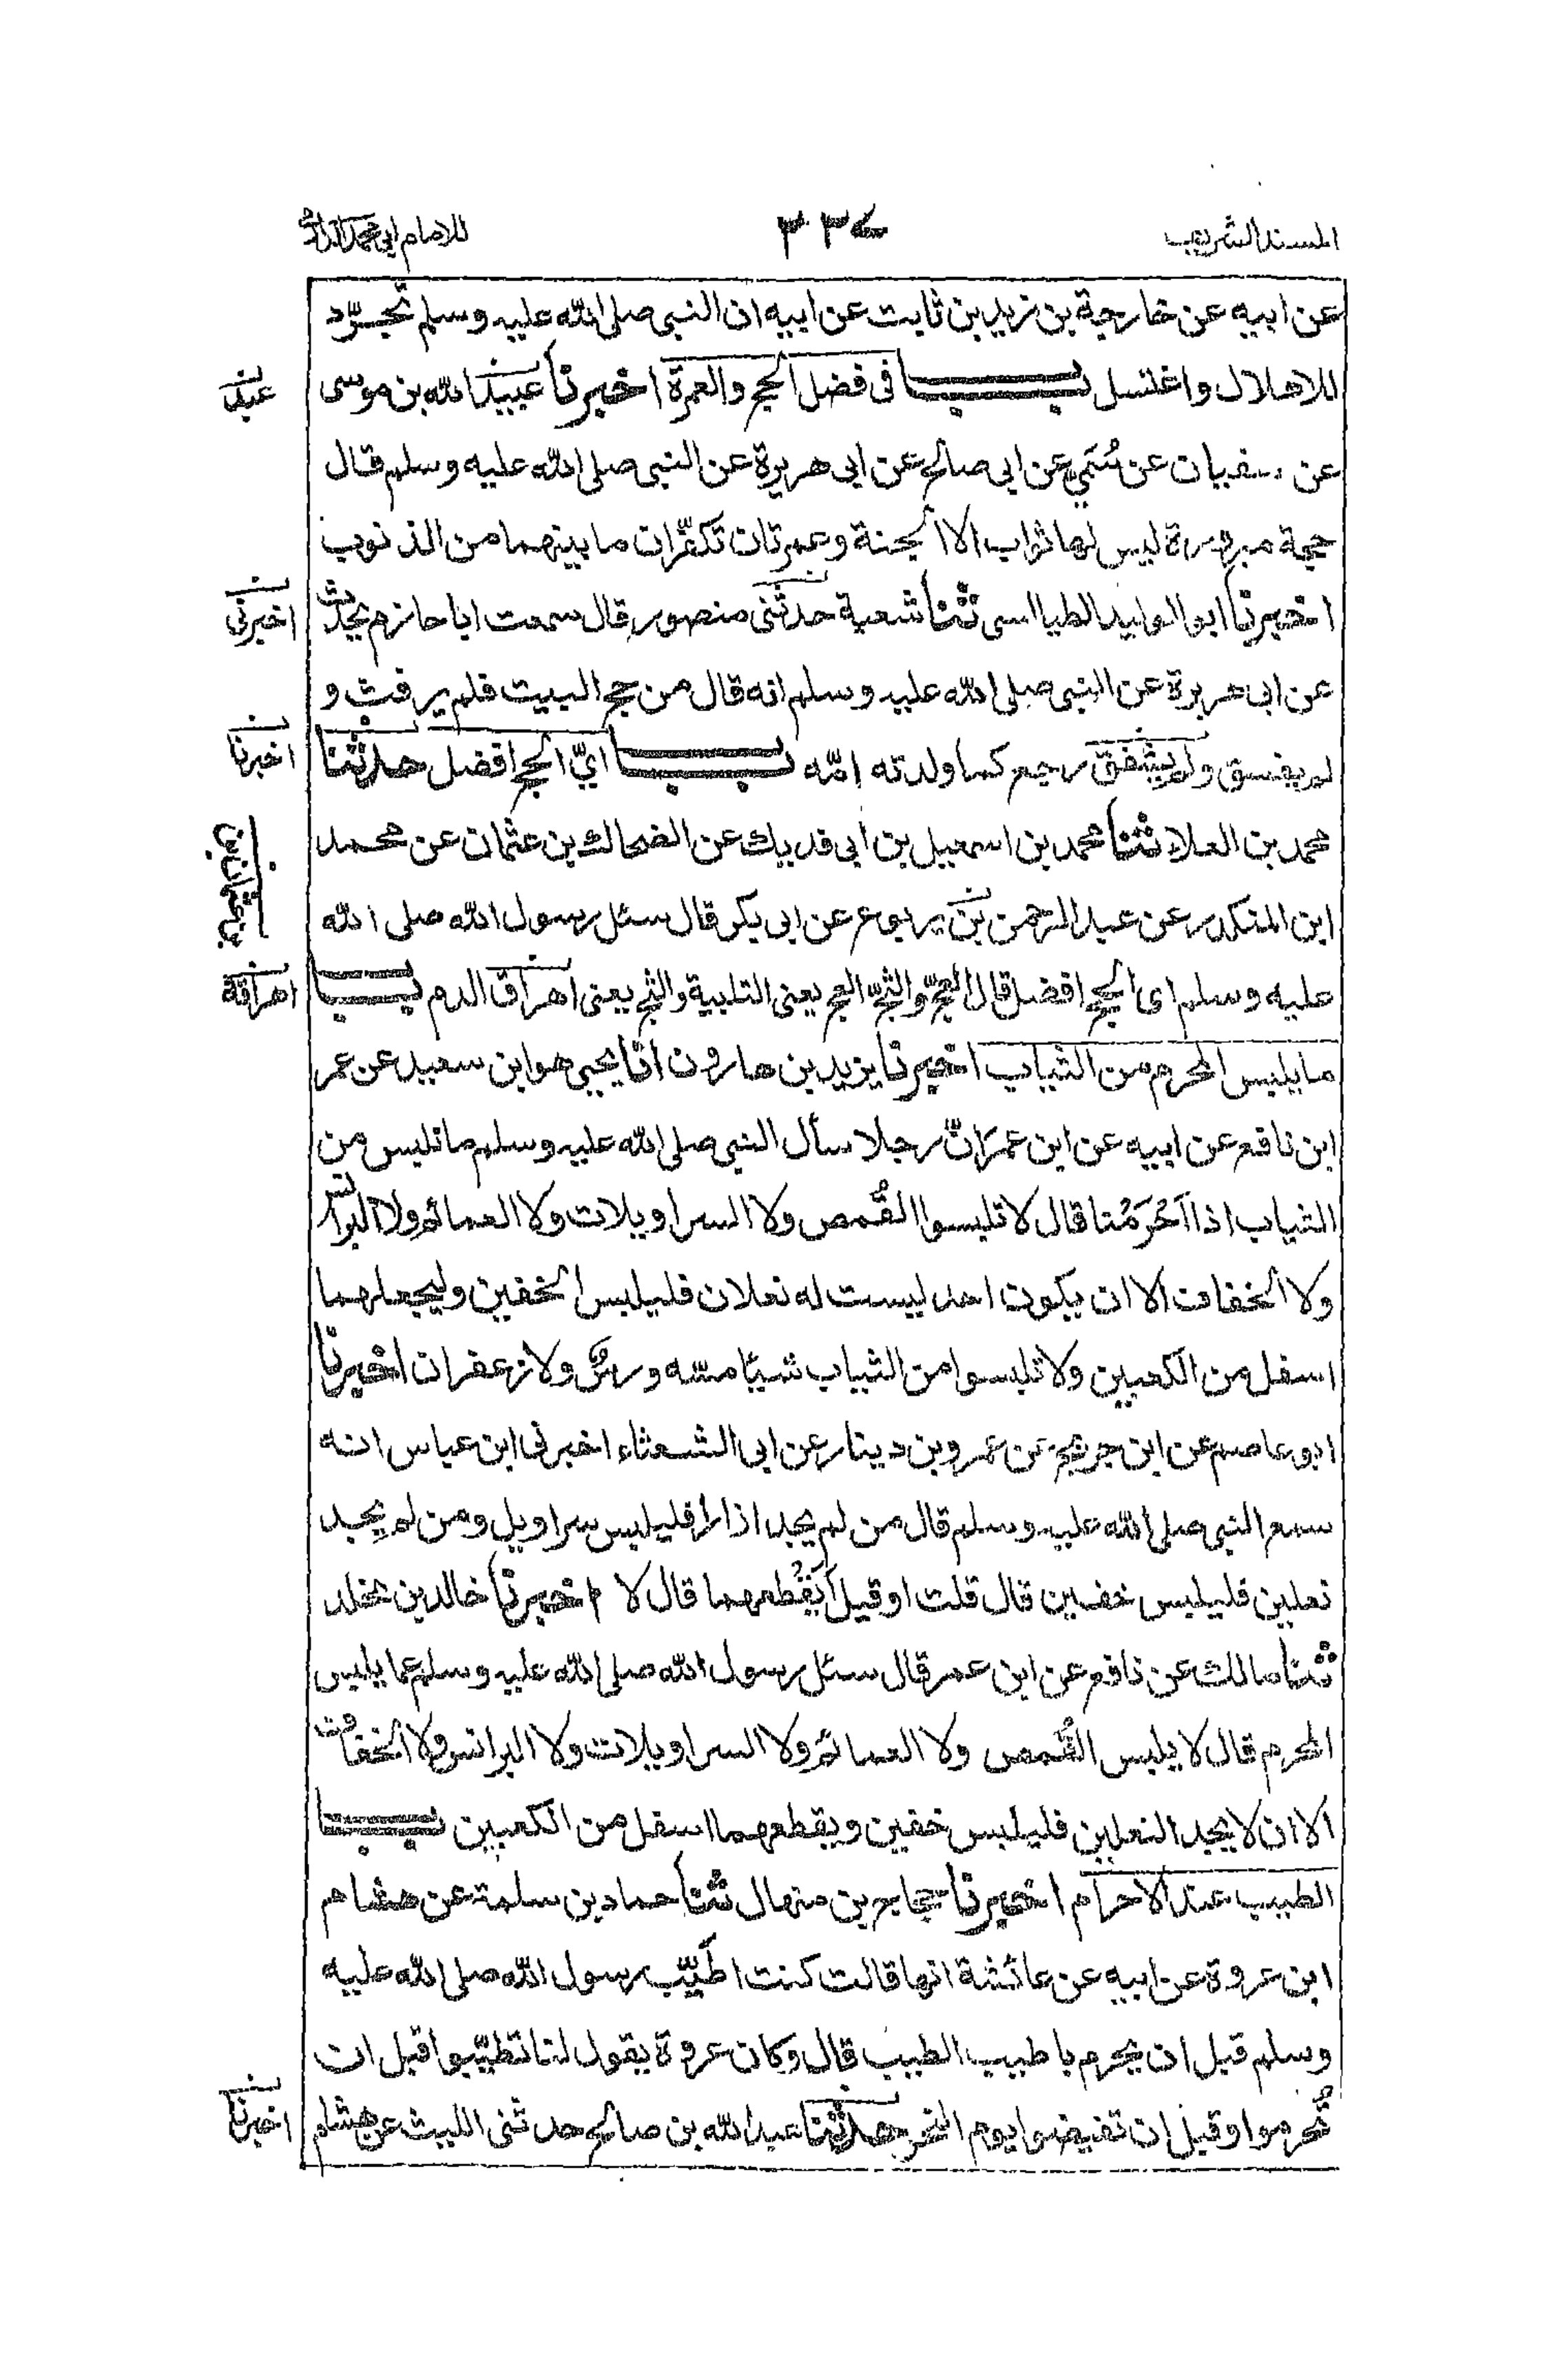 المسند الشريف
للامام ابي محمد الدارمي
عن ابيه عن خارجة بن زيد بن ثابت عن ابيه ان النبي صلى الله عليه وسلم تجرّد
للاهلال واغتسل باب في فضل الحج والعمرة اخبرنا عبيد الله بن موسى
عبد
عن سفيان عن سُمَيّ عن ابي صالح عن ابي هريرة عن النبي صلى الله عليه وسلم قال
حجة مبرورة ليس لها ثواب الا الجنة وعمرتان تكفّران ما بينهما من الذنوب
اخبرنا ابو الوليد الطيالسي ثنا شعبة حدثنى منصور قال سمعت ابا حازم يحدث
اخبرني
عن ابي هريرة عن النبي صلى الله عليه وسلم انه قال من حج البيت فلم يرفث و
لم يفسق رجع كما ولدته امّه باب ايّ الحج افضل حدثنا
اخبرنا
محمد بن العلاء ثنا محمد بن اسمعيل بن ابي فديك عن الضحاك بن عثمان عن محمد
ابن المنكدر عن عبد الرحمن بن يربوع عن ابي بكر قال سئل رسول الله صلى الله
عليه وسلم اى الحج افضل قال العجّ والثجّ العج يعنى التلبية والثج يعنى اهراق الدم باب
اهراقة
ما يلبس المحرم من الثياب اخبرنا يزيد بن هارون انا يحيى هو ابن سعيد عن عمر
ابن نافع عن ابيه عن ابن عمر انّ رجلا سأل النبي صلى الله عليه وسلم ما نلبس من
الثياب اذا اَحْرَمْنا قال لا تلبسوا القُمص ولا السراويلات ولا العمائم ولا البرانس
ولا الخفاف الا ان يكون احد ليست له نعلان فليلبس الخفين وليجعلهما
اسفل من الكعبين ولا تلبسوا من الثياب شيئا مسّه ورسٌ ولا زعفران اخبرنا
ابو عاصم عن ابن جريج عن عمرو بن دينار عن ابي الشعثاء اخبرني ابن عباس انه
سمع النبي صلى الله عليه وسلم قال من لم يجد اذارا فليلبس سراويل ومن لم يجد
نعلين فليلبس خفين قال قلت او قيل اَيَقْطعهما قال لا اخبرنا خالد بن مخلد
ثنا مالك عن نافع عن ابن عمر قال سئل رسول الله صلى الله عليه وسلم عما يلبس
المحرم قال لا يلبس القُمص ولا العمائم ولا السراويلات ولا البرانس ولا الخفاف
الا ان لا يجد النعلين فليلبس خفين ويقطعهما اسفل من الكعبين باب
الطيب عند الاحرام اخبرنا حجاج بن منهال ثنا حماد بن سلمة عن هشام
ابن عروة عن ابيه عن عائشة انها قالت كنت اطَيّب رسول الله صلى الله عليه
وسلم قبل ان يحرم باطيب الطيب قال وكان عروة يقول لنا تطيّبوا قبل ان
تُحرموا وقبل ان تفيضوا يوم النحر حدثنا عبد الله بن صالح حدثنى الليث عن هشام
اخبرنا